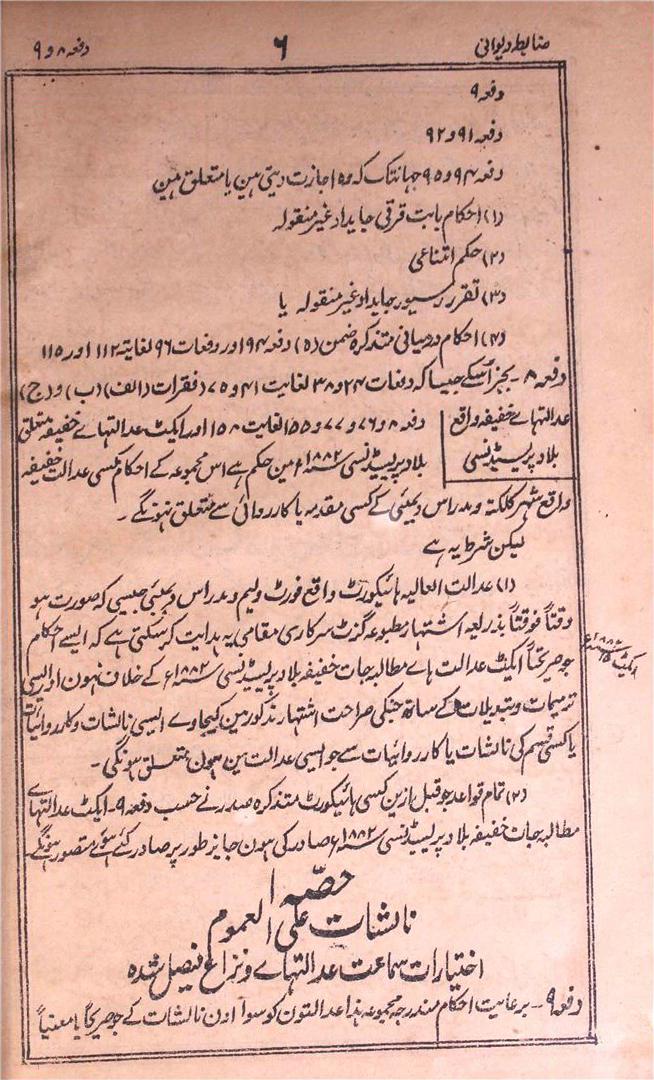 ضابطہ دیوانی
۶
دفعہ ۸ و ۹
دفعہ ۹
دفعہ ۹۱ و ۹۲
دفعہ ۹۴ و ۹۵ جہانتک کہ وہ اجازت دیتی ہین یا متعلق ہین
(۱) احکام بابت قرقی جایداد غیر منقولہ
(۲) حکم امتناعی
(۳) تقرر رسیور جایداد غیر منقولہ یا
(۴) احکام درمیانی متذکرہ ضمن (ہ) دفعہ ۹۴ اور دفعات ۹۶ لغایۃ ۱۱۲ اور ۱۱۵
دفعہ ۸ - بجز اسکے جیسا کہ دفعات ۲۴ و ۳۸ لغایت ۴۱ و ۷۵ (فقرات (الف) (ب) و (ج)
عدالتہاے خفیفہ واقع
بلاد پریسیڈنسی
دفعہ ۷۶ و ۷۷ و ۱۵۵ لغایت ۱۵۸ اور ایکٹ عدالتہاے خفیفہ متعلق
بلاد پریسیڈنسی ۱۸۸۲ء مین حکم ہے اس مجموعہ کے احکام کسی عدالت خفیفہ
واقع شہر کلکتہ و مدراس و بمبئی کے کسی مقدمہ یا کارروائی سے متعلق نہونگے -
لیکن شرط یہ ہے
(۱) عدالت العالیہ ہائیکورٹ واقع فورٹ ولیم و مدراس و بمبئی جیسی کہ صورت ہو
وقتاً فوقتاً بذریعہ اشتہار مطبوعہ گزٹ سرکاری مقامی یہ ہدایت کرسکتی ہے کہ ایسے احکام
جو صریحًا ایکٹ عدالت ہاے مطالبہ جات خفیفہ بلاد پریسیڈنسی ۱۸۸۲ء کے خلاف نہون اور ایسی
ایکٹ ۱۵ ۱۸۸۲ء
ترمیمات و تبدیلات کے ساتھ جنکی صراحت اشتہار مذکور مین کیجاوے ایسی نالشات و کارروائیات
یا کسی قسم کی نالشات یا کارروائیات سے جو ایسی عدالت مین ہون متعلق ہونگی -
(۲) تمام قواعد جو قبل ازین کسی ہائیکورٹ متذکرہ صدر نے حسب دفعہ ۹ - ایکٹ عدالتہاے
مطالبہ جات خفیفہ بلاد پریسیڈنسی ۱۸۸۲ء صادر کی ہون جایز طور پر صادر کئے ہوئے متصور ہونگے -
حصہ ا
نالشات علی العموم
اختیارات سماعت عدالتہاے و نزاع فیصل شدہ
دفعہ ۹ - برعایت احکام مندرجہ مجموعہ ہذا عدالتون کو سوا اون نالشات کے جو صریحًا یا معنیاً